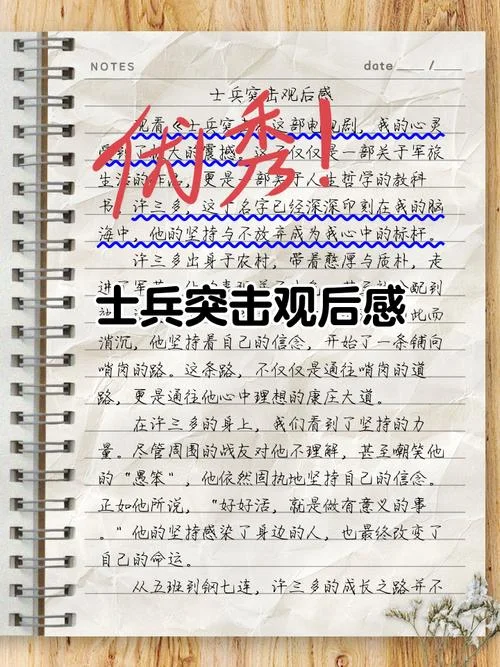 NOTES
date /
士兵突击观后感
优秀!
观看《士兵突击》这部电视剧，我的心灵
受到了大的震撼。这不仅仅是一部关于军旅
生活的作品，更是一部关于人生哲学的教科
书。许三多，这个名字已经深深印刻在我的脑
海中，他的坚持与不放弃成为我心中的标杆。
许三多出身于农村，带着憨厚与质朴，走
士兵突击观后感
配到
此而
消沉，他坚持着自己的信念，开始了一条铺向
哨岗的路。这条路，不仅仅是通往哨岗的道
路，更是通往他心中理想的康庄大道。
在许三多的身上，我们看到了坚持的力
量。尽管周围的战友对他不理解，甚至嘲笑他
的“愚笨”，他依然固执地坚持自己的信念。
正如他所说，“好好活，就是做有意义的事
。”他的坚持感染了身边的人，也最终改变了
自己的命运。
从五班到钢七连，许三多的成长之路并不